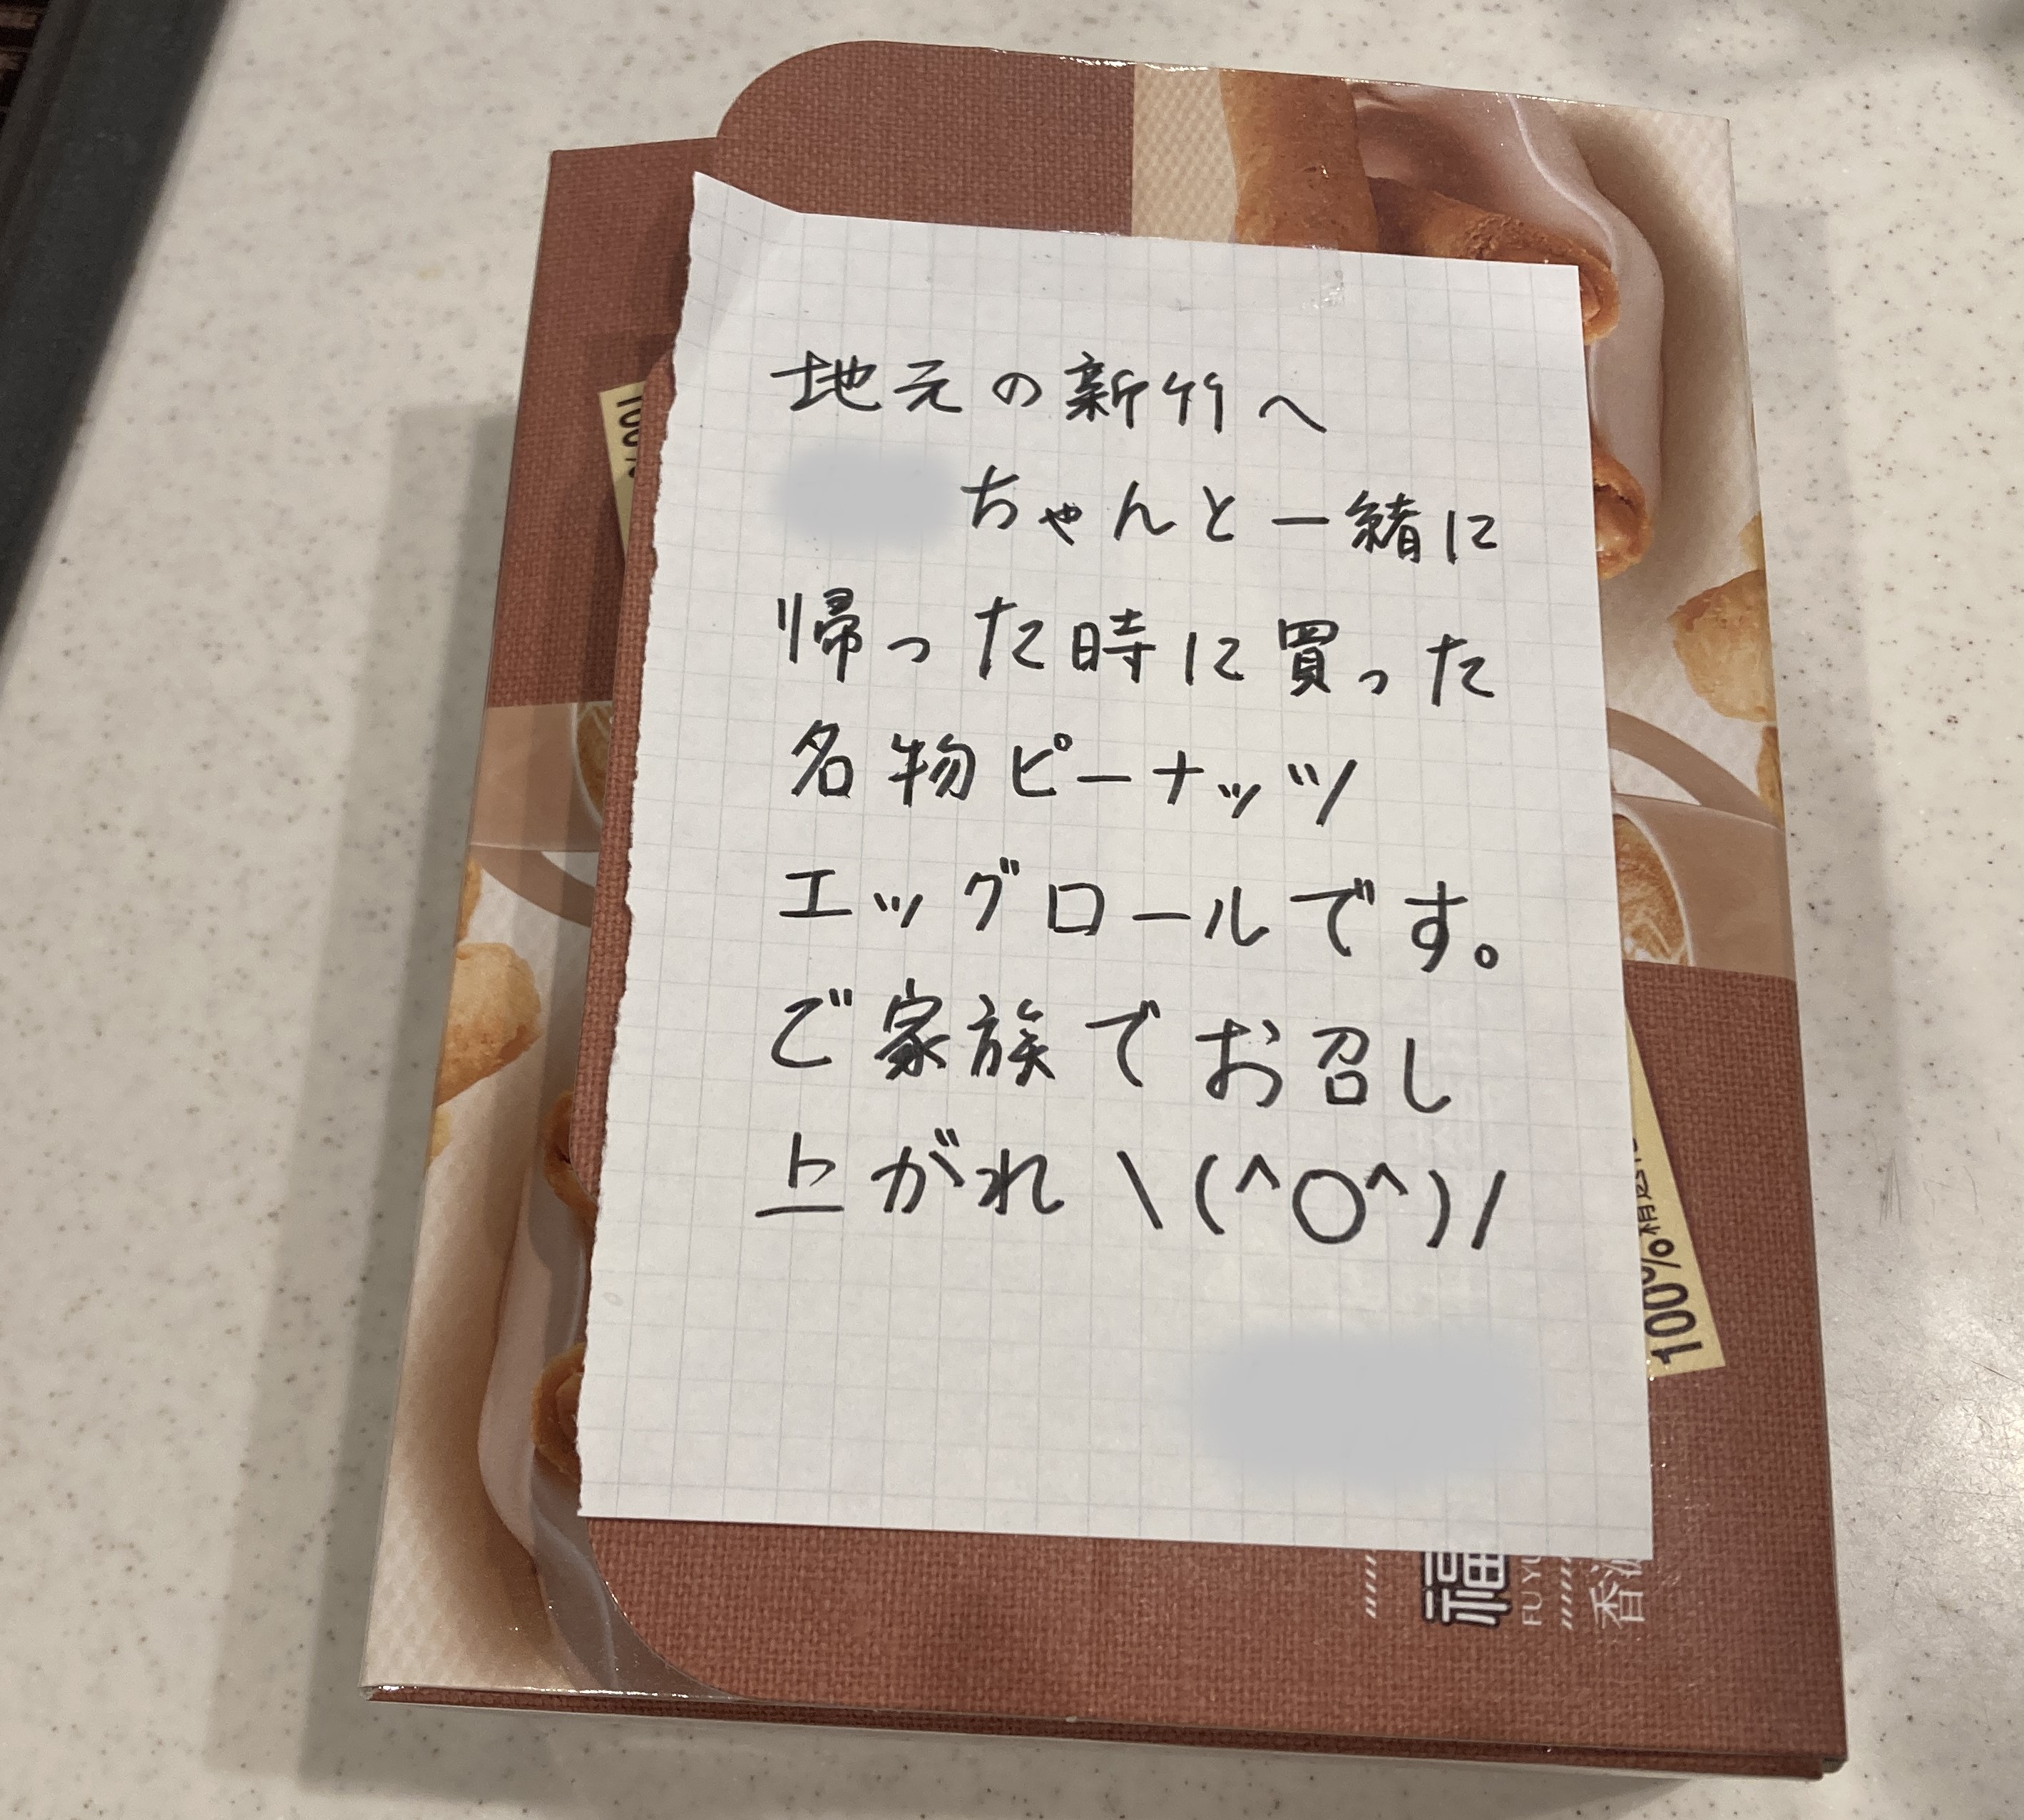 地元の新竹へ
ちゃんと一緒に
帰った時に買った
名物ピーナッツ
エッグロールです。
ご家族でお召し
上がれ \(^○^)/
100%
100%精選
福
FU YU
香